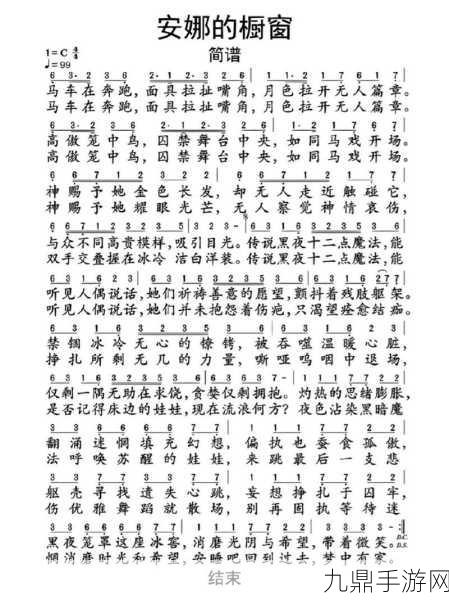 安娜的橱窗
简谱
1=C 4/4
♩=99
马车在奔跑，面具拉扯嘴角，月色拉开无人篇章。
马车在奔跑，面具拉扯嘴角，月色拉开无人篇章。
高傲笼中鸟，囚禁舞台中央，如同马戏开场。
高傲笼中鸟，囚禁舞台中央，如同马戏开场。
神赐予她金色长发，却无人走近触碰它，
神赐予她耀眼光芒，无人察觉神情哀伤，
与众不同高贵模样，吸引目光。传说黑夜十二点魔法，能
双手交叠握在冰冷 洁白洋装。传说黑夜十二点魔法，能
听见人偶说话，她们祈祷善意的愿望，颤抖着残肢躯架。
听见人偶说话，她们并未抱怨着伤疤，只渴望痊愈结痂。
禁锢冰冷无心的镣铐，被吞噬温暖心脏，
挣扎所剩无几的力量，嘶哑呜咽中退场，
仅剩一隅无助在求饶，贪婪仅剩拥抱。灼热的思绪膨胀，
是否记得床边的娃娃，现在流浪何方？夜色沾染黑暗魔
翻涌迷惘填充幻想，偏执也蚕食孤傲，
法呼唤苏醒的娃娃，来跳最后一支悲
躯壳寻找遗失心跳，妄想挣扎于囚牢，
伤优雅舞蹈就散场，别再固执等待迷
黑夜笼罩这座冰窖，消磨光阴与希望，带着微笑。
惘消磨时光和希望，安睡吧回到过去，梦中有家。
D.C.
D.S.
结束
九鼎手游网